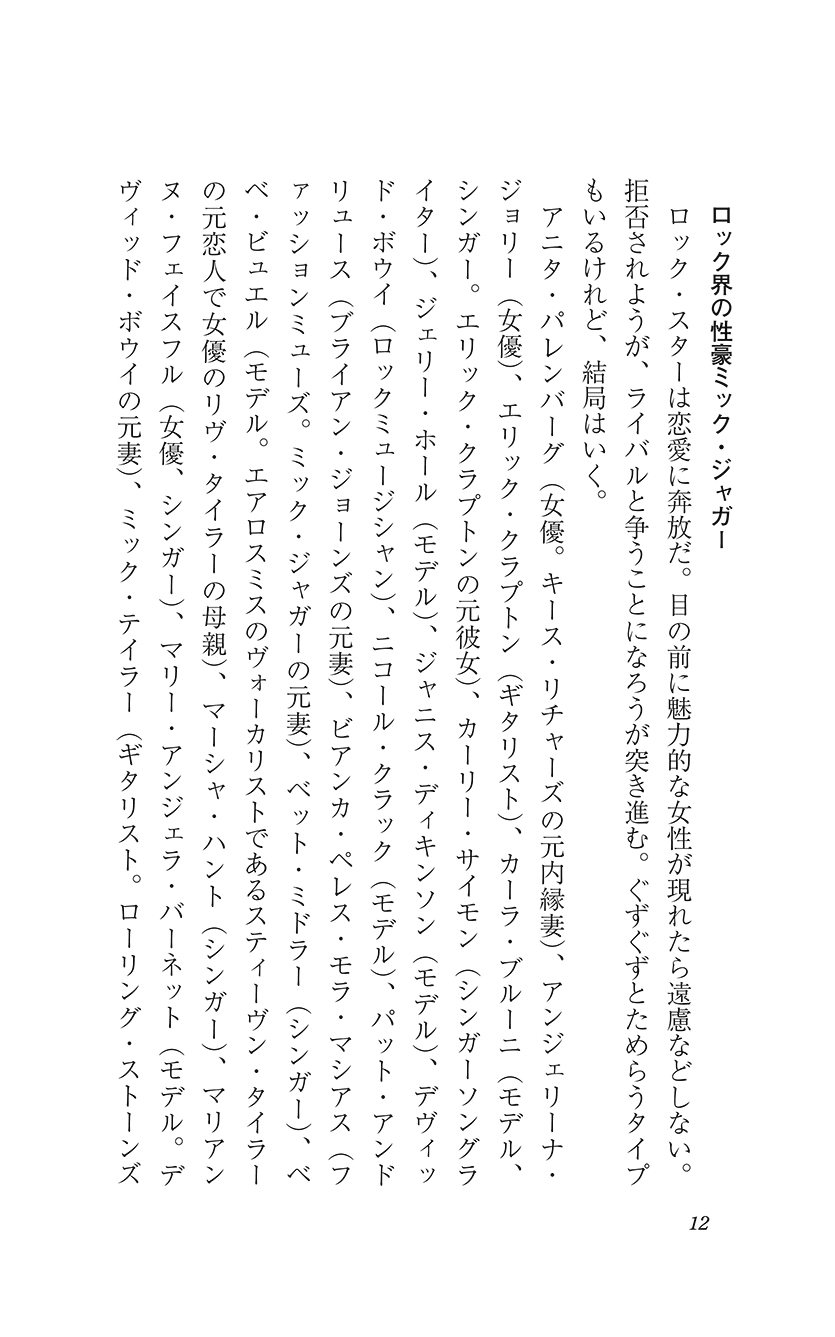 ロック界の性豪ミック・ジャガー
ロック・スターは恋愛に奔放だ。目の前に魅力的な女性が現れたら遠慮などしない。
拒否されようが、ライバルと争うことになろうが突き進む。ぐずぐずとためらうタイプ
もいるけれど、結局はいく。
アニタ・パレンバーグ（女優。キース・リチャーズの元内縁妻）、アンジェリーナ・
ジョリー（女優）、エリック・クラプトン（ギタリスト）、カーラ・ブルーニ（モデル、
シンガー。エリック・クラプトンの元彼女）、カーリー・サイモン（シンガーソングラ
イター）、ジェリー・ホール（モデル）、ジャニス・ディキンソン（モデル）、デヴィッ
ド・ボウイ（ロックミュージシャン）、ニコール・クラック（モデル）、パット・アンド
リュース（ブライアン・ジョーンズの元妻）、ビアンカ・ペレス・モラ・マシアス（フ
ァッションミューズ。ミック・ジャガーの元妻）、ベット・ミドラー（シンガー）、ベ
ベ・ビュエル（モデル。エアロスミスのヴォーカリストであるスティーヴン・タイラー
の元恋人で女優のリヴ・タイラーの母親）、マーシャ・ハント（シンガー）、マリアン
ヌ・フェイスフル（女優、シンガー）、マリー・アンジェラ・バーネット（モデル。デ
ヴィッド・ボウイの元妻）、ミック・テイラー（ギタリスト。ローリング・ストーンズ
12